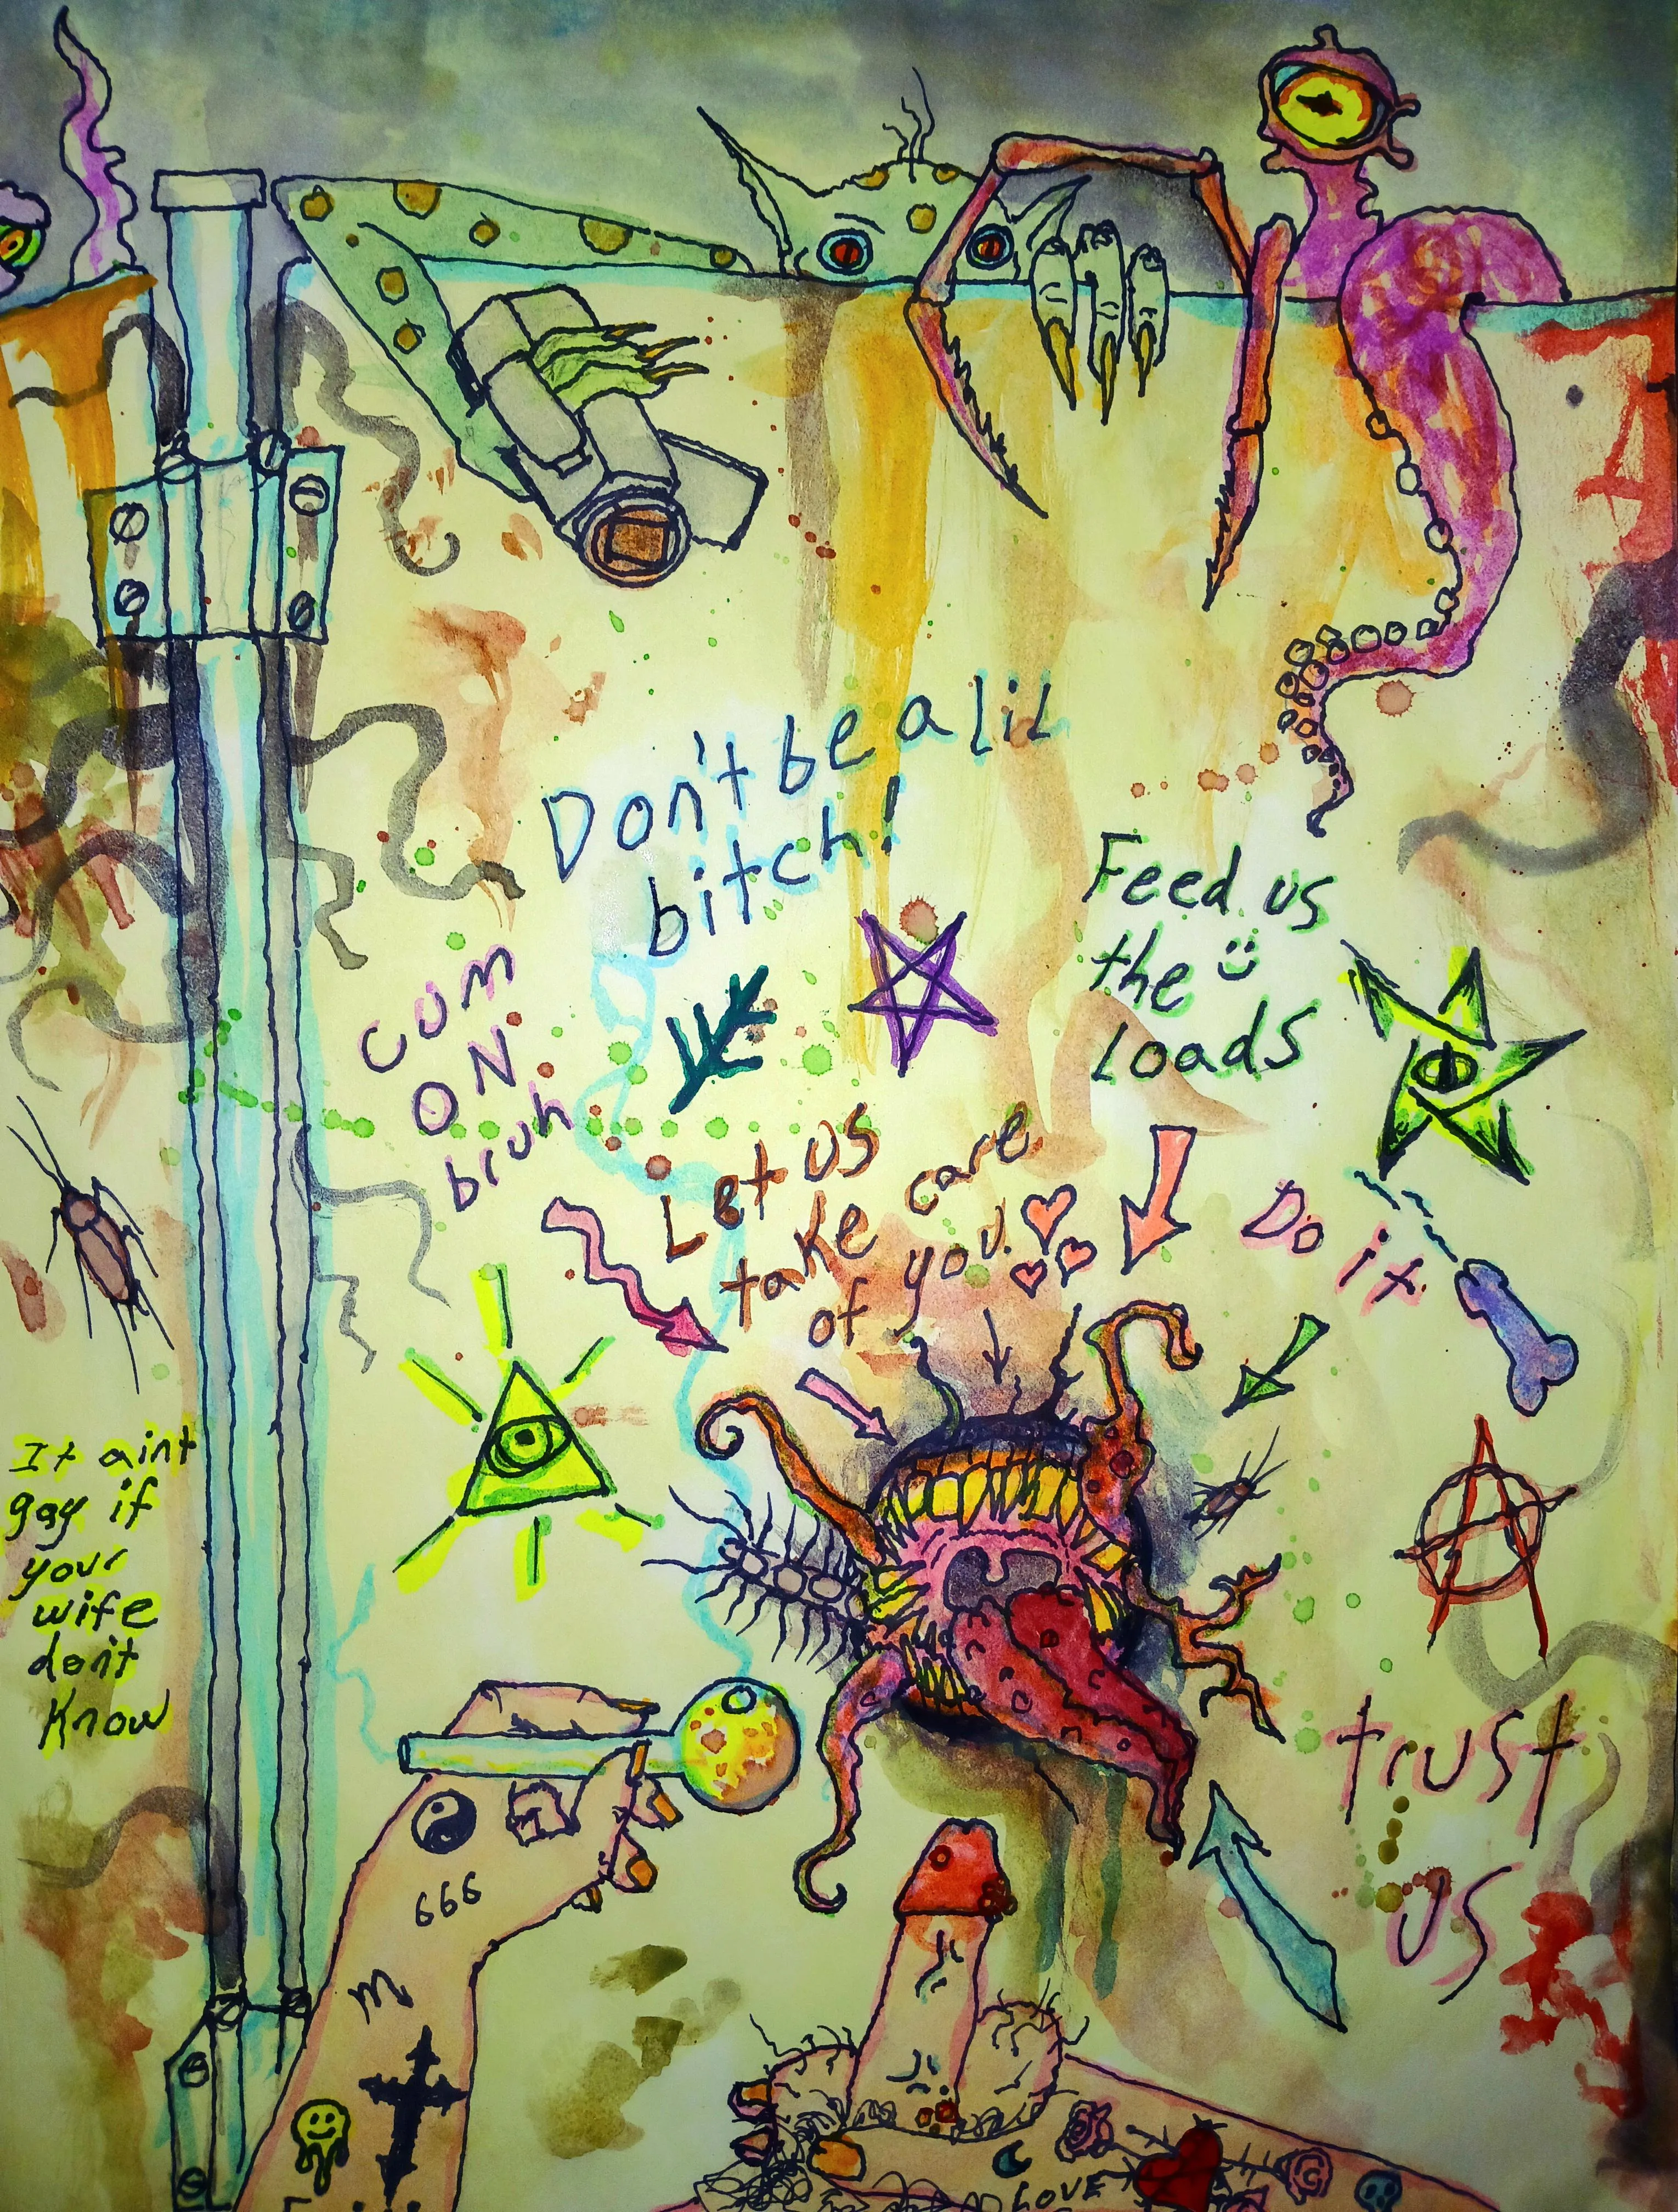 Don't be a lil
bitch!
Feed us
the
loads
cum
ON
bruh
Let us
take care
of you.
Do it
It aint
gay if
your
wife
don't
know
trust
us
666
m
LOVE